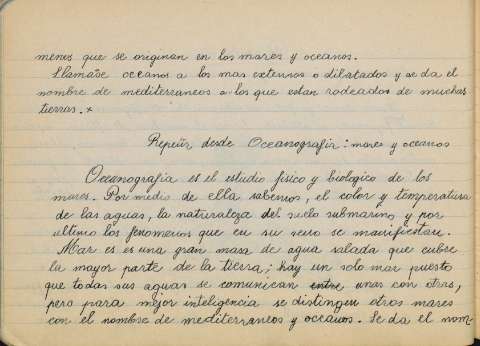 menos que se originan en los mares y oceanos.
Llamase oceanos a los mas extensos o dilatados y se da el
nombre de mediterraneos a los que estan rodeados de muchas
tierras. x
Repetir desde Oceanografia: mares y oceanos
Oceanografia es el estudio fisico y biologico de los
mares. Por medio de ella sabemos, el color y temperatura
de las aguas, la naturaleza del suelo submarino y por
ultimo los fenomenos que en su seno se manifiestan.
Mar es es una gran masa de agua salada que cubre
la mayor parte de la tierra; hay un solo mar puesto
que todas sus aguas se comunican entre unas con otras,
pero para mejor inteligencia se distinguen otros mares
con el nombre de mediterraneos y oceanos. Se da el nom-